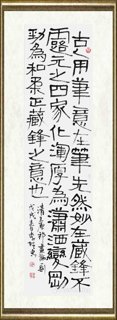 古人用筆意在筆先然妙在藏鋒不
露元之四家化渾厚為瀟洒變剛
勁為和柔正藏鋒之意也